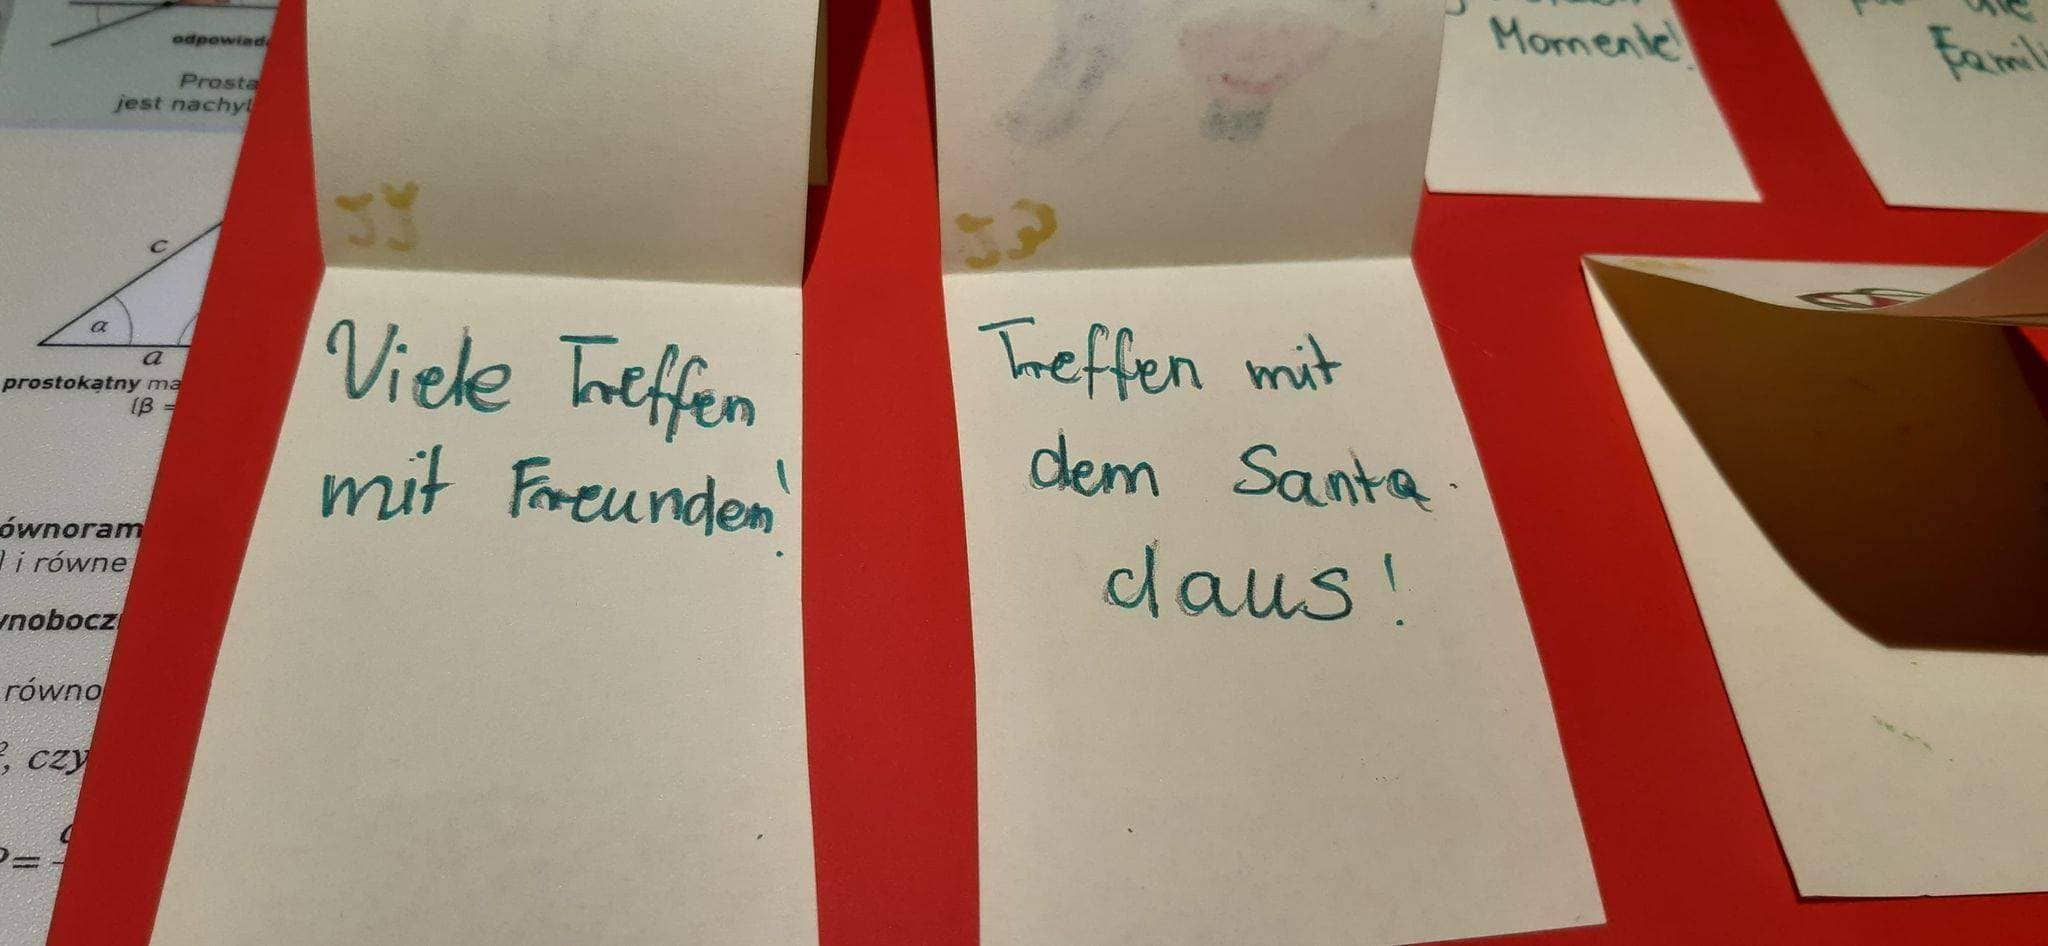 odpowiada
Prosta
jest nachyl
c
α
a
prostokątny ma
(β =
ównoram
) i równe
ynobocz
równo
², czy
P=
Viele Treffen
mit Freunden!
Treffen mit
dem Santa
claus!
Momente!
die
Famili